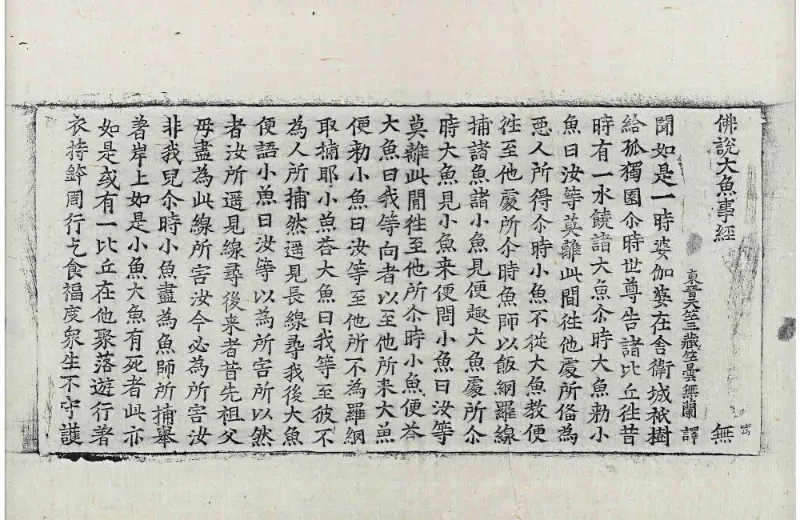 佛說大魚事經　無
東晉天竺三藏竺曇無蘭譯
聞如是一時婆伽婆在舍衛城祇樹
給孤獨園尒時世尊告諸比丘往昔
時有一水饒諸大魚尒時大魚勑小
魚曰汝等莫離此間徃他處所俻為
惡人所得尒時小魚不從大魚教便
徃至他處所尒時魚師以飯網羅線
捕諸魚諸小魚見便趣大魚處所尒
時大魚見小魚来便問小魚曰汝等
莫離此間徃至他所尒時小魚便荅
大魚曰我等向者以至他所来大魚
便勑小魚曰汝等至他所不為羅網
取捕耶小魚荅大魚曰我等至彼不
為人所捕然遥見長線尋我後大魚
便語小魚曰汝等以為所害所以然
者汝所遥見線尋後来者昔先祖父
毋盡為此線所害汝今必為所害汝
非我兒尒時小魚盡為魚師所捕舉
著岸上如是小魚大魚有死者此亦
如是或有一比丘在他聚落遊行著
衣持鉢罔行乞食福度衆生不守護